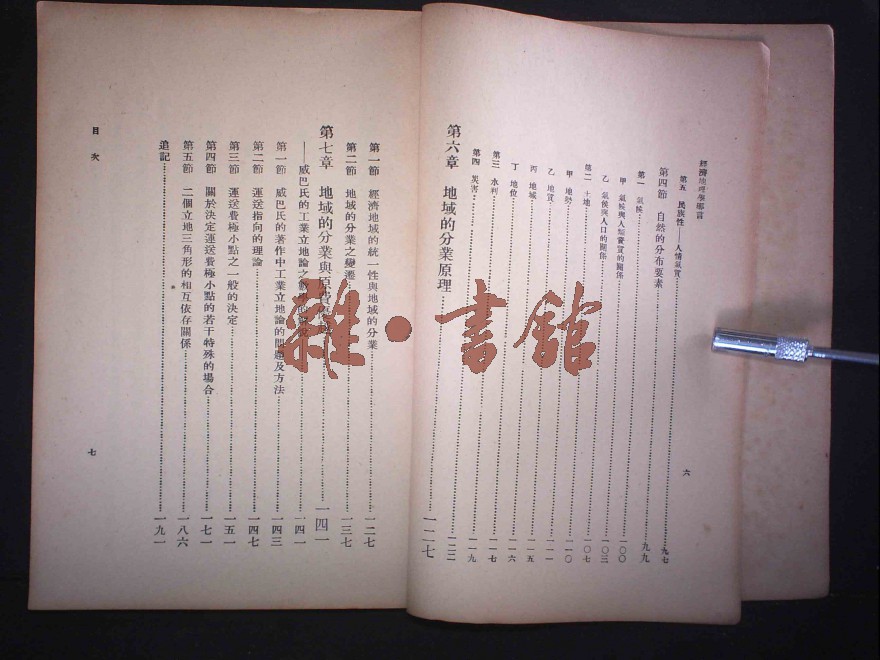 經濟地理學導言
第五 民族性——人情氣質……九七
第四節 自然的分布要素……九九
第一 氣候……一〇〇
甲 氣候與人類資質的關係……一〇三
乙 氣候與人口的關係……一〇七
第二 土地……一一〇
甲 地勢……一一一
乙 地質……一一五
丙 地域……一一六
丁 地位……一一七
第三 水利……一一九
第四 災害……一二二
第六章 地域的分業原理……一二七
六
第一節 經濟地域的統一性與地域的分業……一二七
第二節 地域的分業之變遷……一三七
第七章 地域的分業與原費……一四一
——威巴氏的工業立地論之……一四一
第一節 威巴氏的著作中工業立地論的問題及方法……一四三
第二節 運送指向的理論……一四七
第三節 運送費極小點之一般的決定……一五一
第四節 關於決定運送費極小點的若干特殊的場合……一七一
第五節 二個立地三角形的相互依存關係……一八六
追記……一九一
目次
七
雜·書館